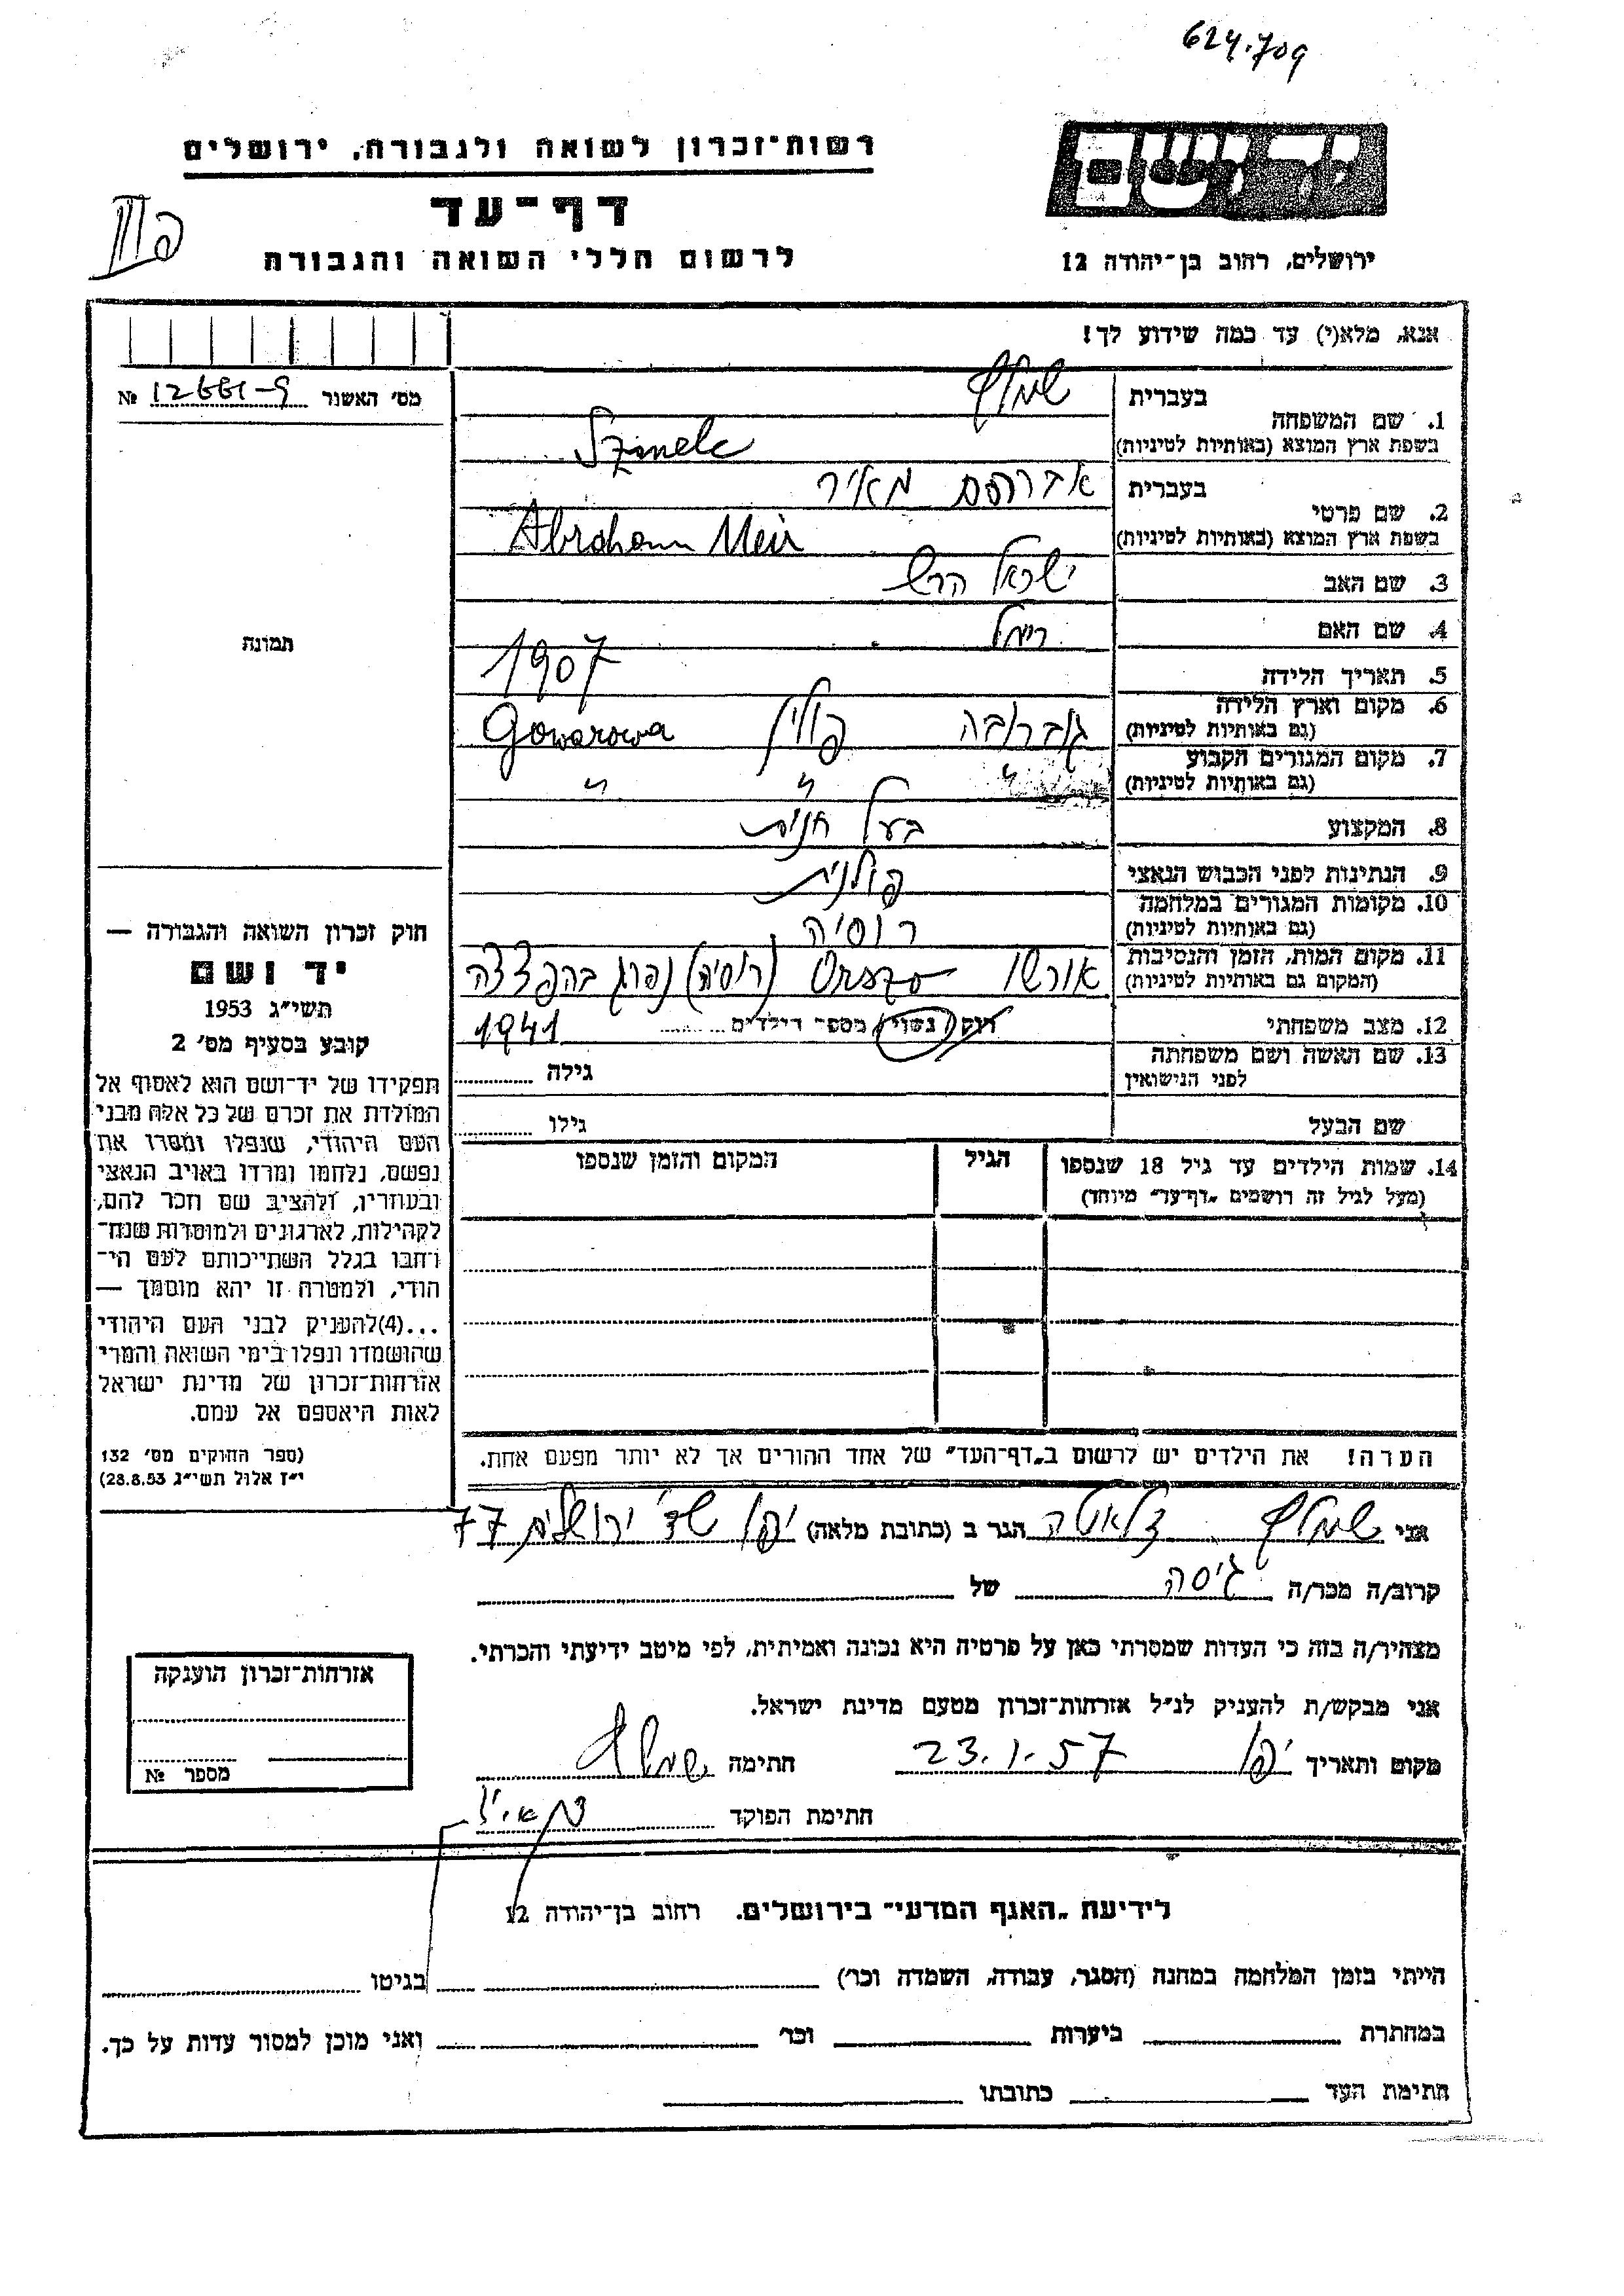 624.709
יד ושם
רשות־זכרון לשואה ולגבורה, ירושלים
דף־עד
לרשום חללי השואה והגבורה
ירושלים, רחוב בן־יהודה 12
אנא, מלא(י) עד כמה שידוע לך!
מס׳ האשור 12661-9 №
1. שם המשפחה
בעברית
בשפת ארץ המוצא (באותיות לטיניות) Szmelc
2. שם פרטי
בעברית אברהם מאיר
בשפת ארץ המוצא (באותיות לטיניות) Abraham Meir
3. שם האב ישראל הרש
4. שם האם
5. תאריך הלידה 1907
6. מקום וארץ הלידה
(גם באותיות לטיניות) גוברובה פולין Goworowa
7. מקום המגורים הקבוע
(גם באותיות לטיניות) " " "
8. המקצוע בעל חנות
9. הנתינות לפני הכבוש הנאצי פולנית
10. מקומות המגורים במלחמה
(גם באותיות לטיניות) רוסיה
11. מקום המות, הזמן והנסיבות
(המקום גם באותיות לטיניות) אורשו (רוסיה) נהרג בהפצצה
1941
12. מצב משפחתי רוק/נשוי/מספר הילדים
13. שם האשה ושם משפחתה
לפני הנישואין גילה
שם הבעל גילו
14. שמות הילדים עד גיל 18 שנספו הגיל המקום והזמן שנספו
(מעל לגיל זה רושמים „דף־עד״ מיוחד)
הערה! את הילדים יש לרשום ב„דף־העד״ של אחד ההורים אך לא יותר מפעם אחת.
תמונה
חוק זכרון השואה והגבורה —
יד ושם
תשי״ג 1953
קובע בסעיף מס׳ 2
תפקידו של יד־ושם הוא לאסוף אל
המולדת את זכרם של כל אלה מבני
העם היהודי, שנפלו ומסרו את
נפשם, נלחמו ומרדו באויב הנאצי
ובעוזריו, ולהציב שם וזכר להם,
לקהילות, לארגונים ולמוסדות שנח־
רבו בגלל השתייכותם לעם הי־
הודי, ולמטרה זו יהא מוסמך —
...(4)להעניק לבני העם היהודי
שהושמדו ונפלו בימי השואה והמרי
אזרחות־זכרון של מדינת ישראל
לאות היאספם אל עמם.
(ספר החוקים מס׳ 132
י״ז אלול תשי״ג 28.8.53)
אני הגר ב (כתובת מלאה) יפו שד׳ ירושלים 77
קרוב/ה מכר/ה גיסה של
מצהיר/ה בזה כי העדות שמסרתי כאן על פרטיה היא נכונה ואמיתית, לפי מיטב ידיעתי והכרתי.
אני מבקש/ת להעניק לנ״ל אזרחות־זכרון מטעם מדינת ישראל.
מקום ותאריך יפו 23.1.57 חתימה
חתימת הפוקד
אזרחות־זכרון הוענקה
מספר №
לידיעת „האגף המדעי״ בירושלים. רחוב בן־יהודה 12
הייתי בזמן המלחמה במחנה (הסגר, עבודה, השמדה וכו׳) בגיטו
במחתרת ביערות וכו׳ ואני מוכן למסור עדות על כך.
חתימת העד כתובתו